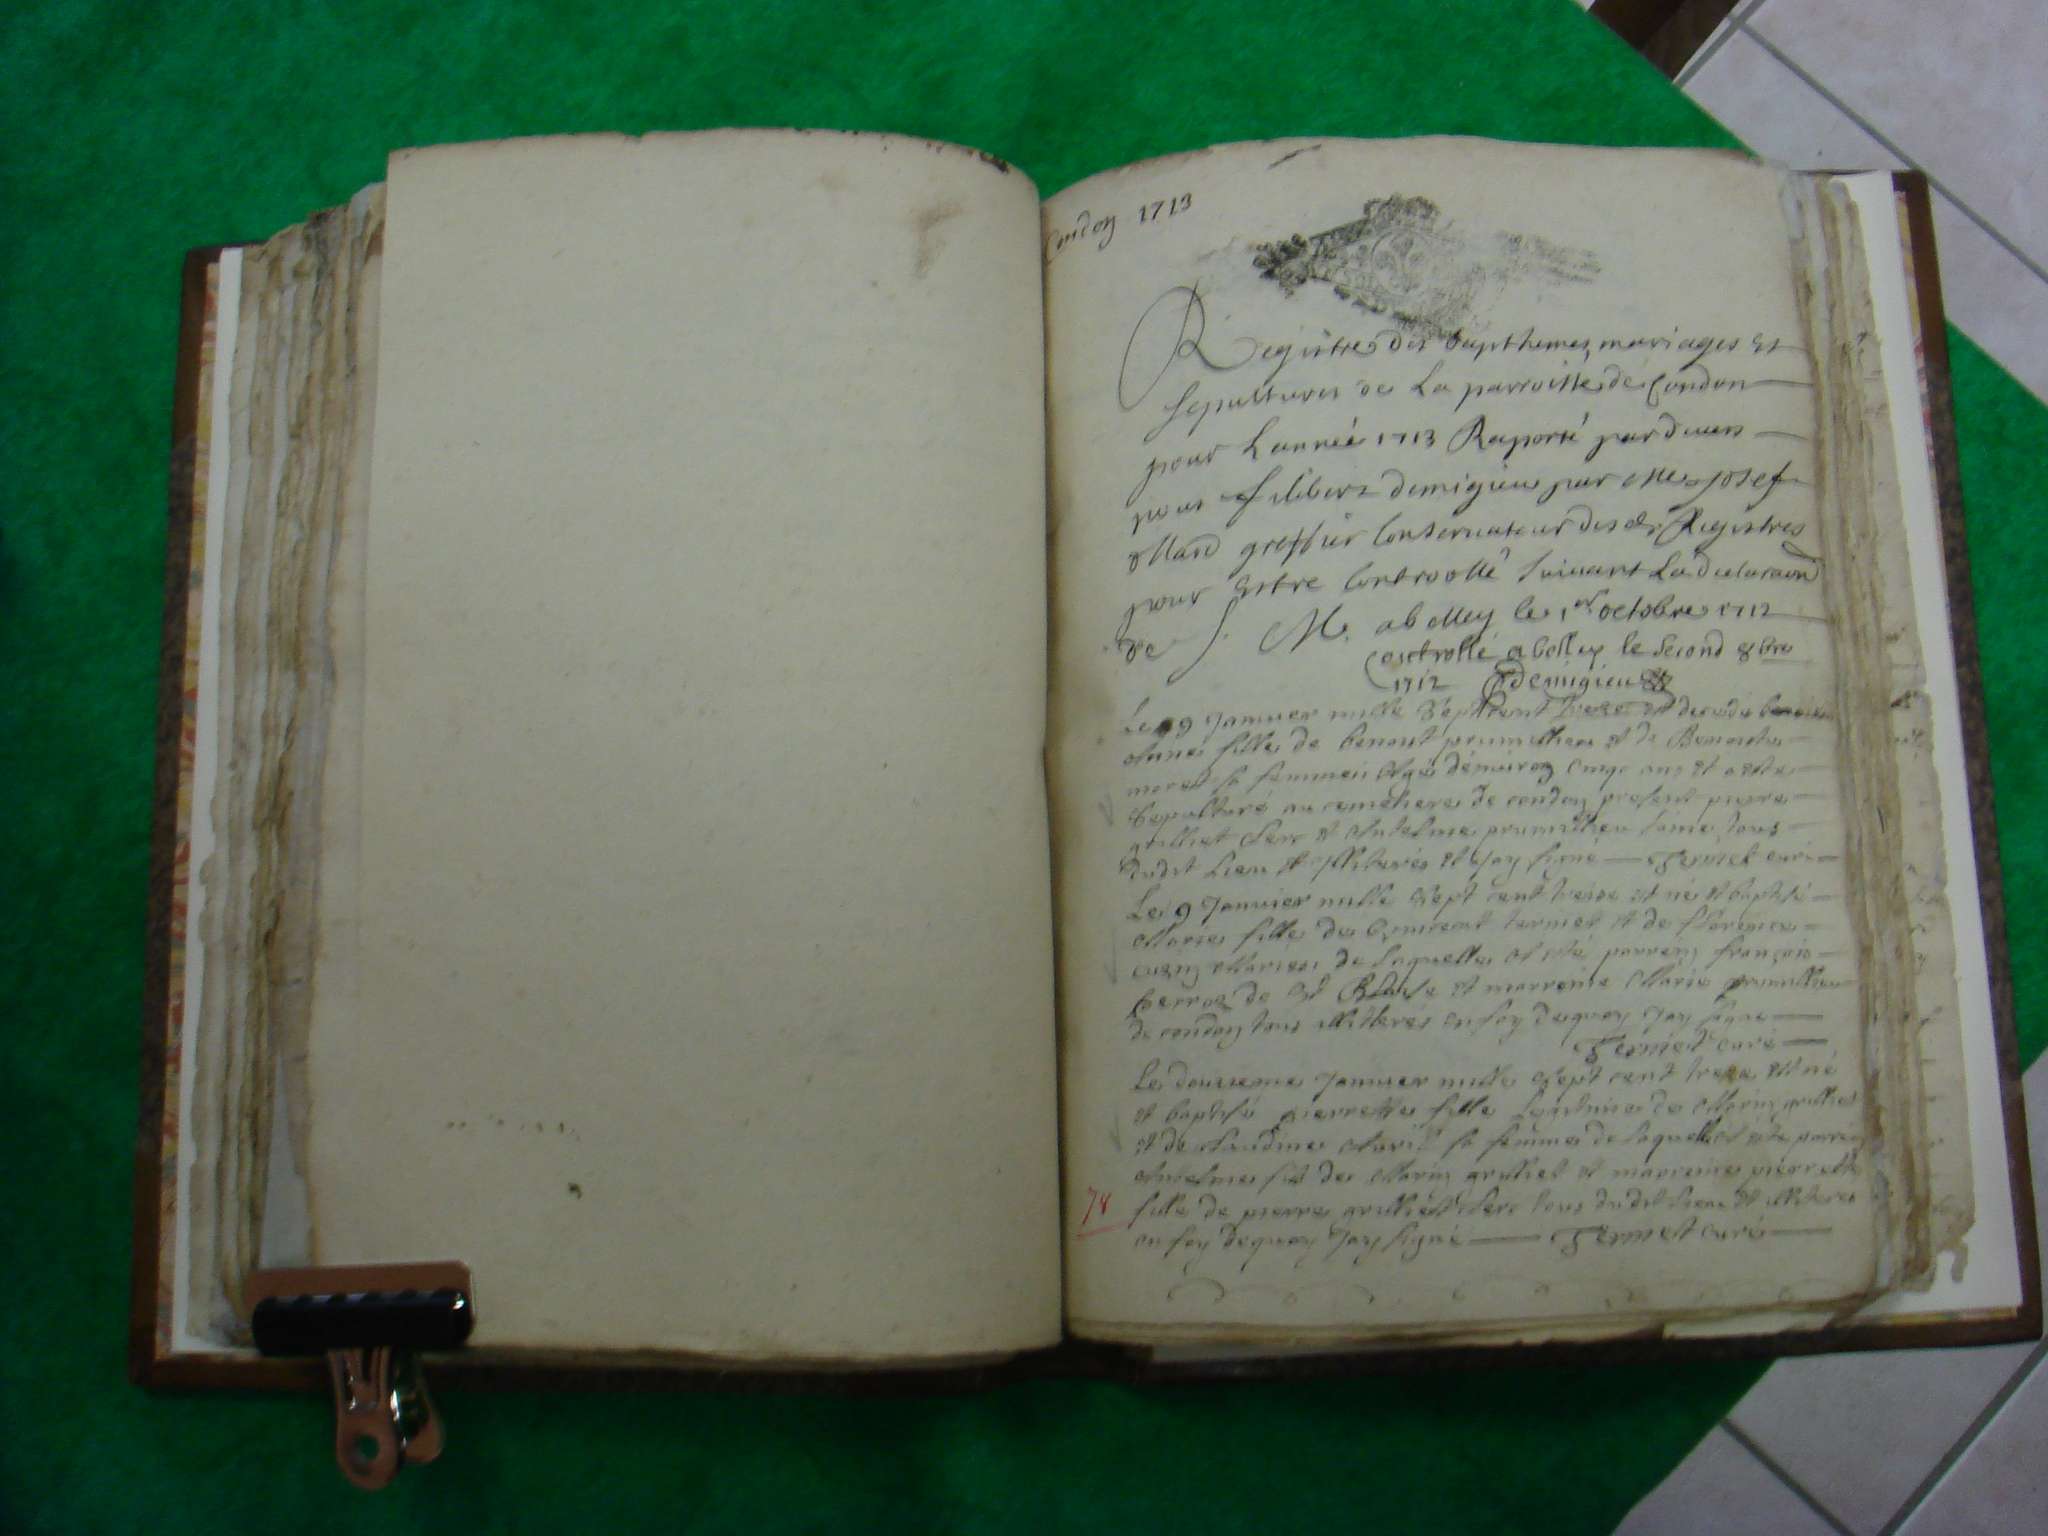 Condon 1713
Registre des bapthemes, mariages et
sepultures de la parroisse de Condon
pour Lannée 1713 Raporté par devers
nous filibert demigieu par me josef
ollard greffier Conservateur desd. Registres
pour Estre Controollé suivant La declaraon
de S. M. a belley le 1er octobre 1712
Controllé a belley le second 8bre
1712 demigieu
Le 9 Janvier mille sept cent treze est decedée
fille de benoit prumilleu et de
morel sa femme agée denviron cinqe ans et a este
sepulturé au cemetiere de condon present pierre
grilliet clerc et Antelme prumilleu tous
dudit Lieu et illiterés et Jay signé Termet curé
Le 9 Janvier mille sept cent treise est né et baptisé
Marie fille de termet et de florence
cuzin mariez de laquelle at esté parrein françois
de St et marreine Marie prumilleu
de condon tous illiterés en foy dequoy Jay signe
Termet curé
Le douzieme Janvier mille sept cent treze est né
et baptisé pierrette fille Legitime de Marin grilliet
et de claudine sa femme de laquelle at este parrein
Antelme fils de Marin grilliet et marreine pierrette
fille de pierre grilliet clerc tous dudit lieu et illiteres
en foy dequoy Jay signé Termet curé
78